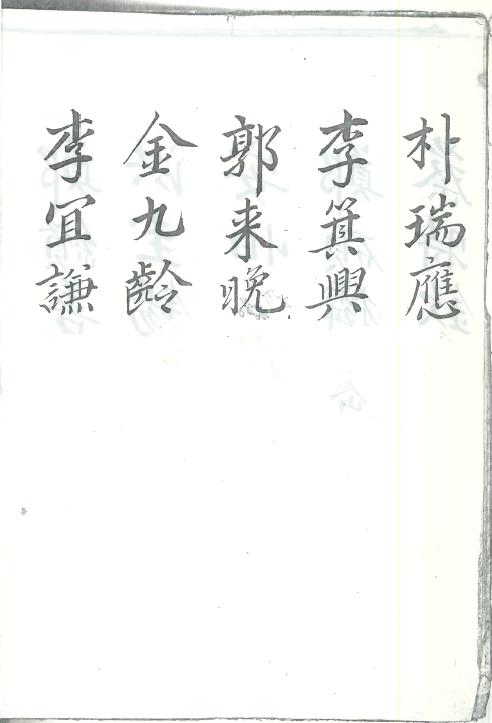 朴瑞應
李箕興
郭来晩
金九齡
李冝謙